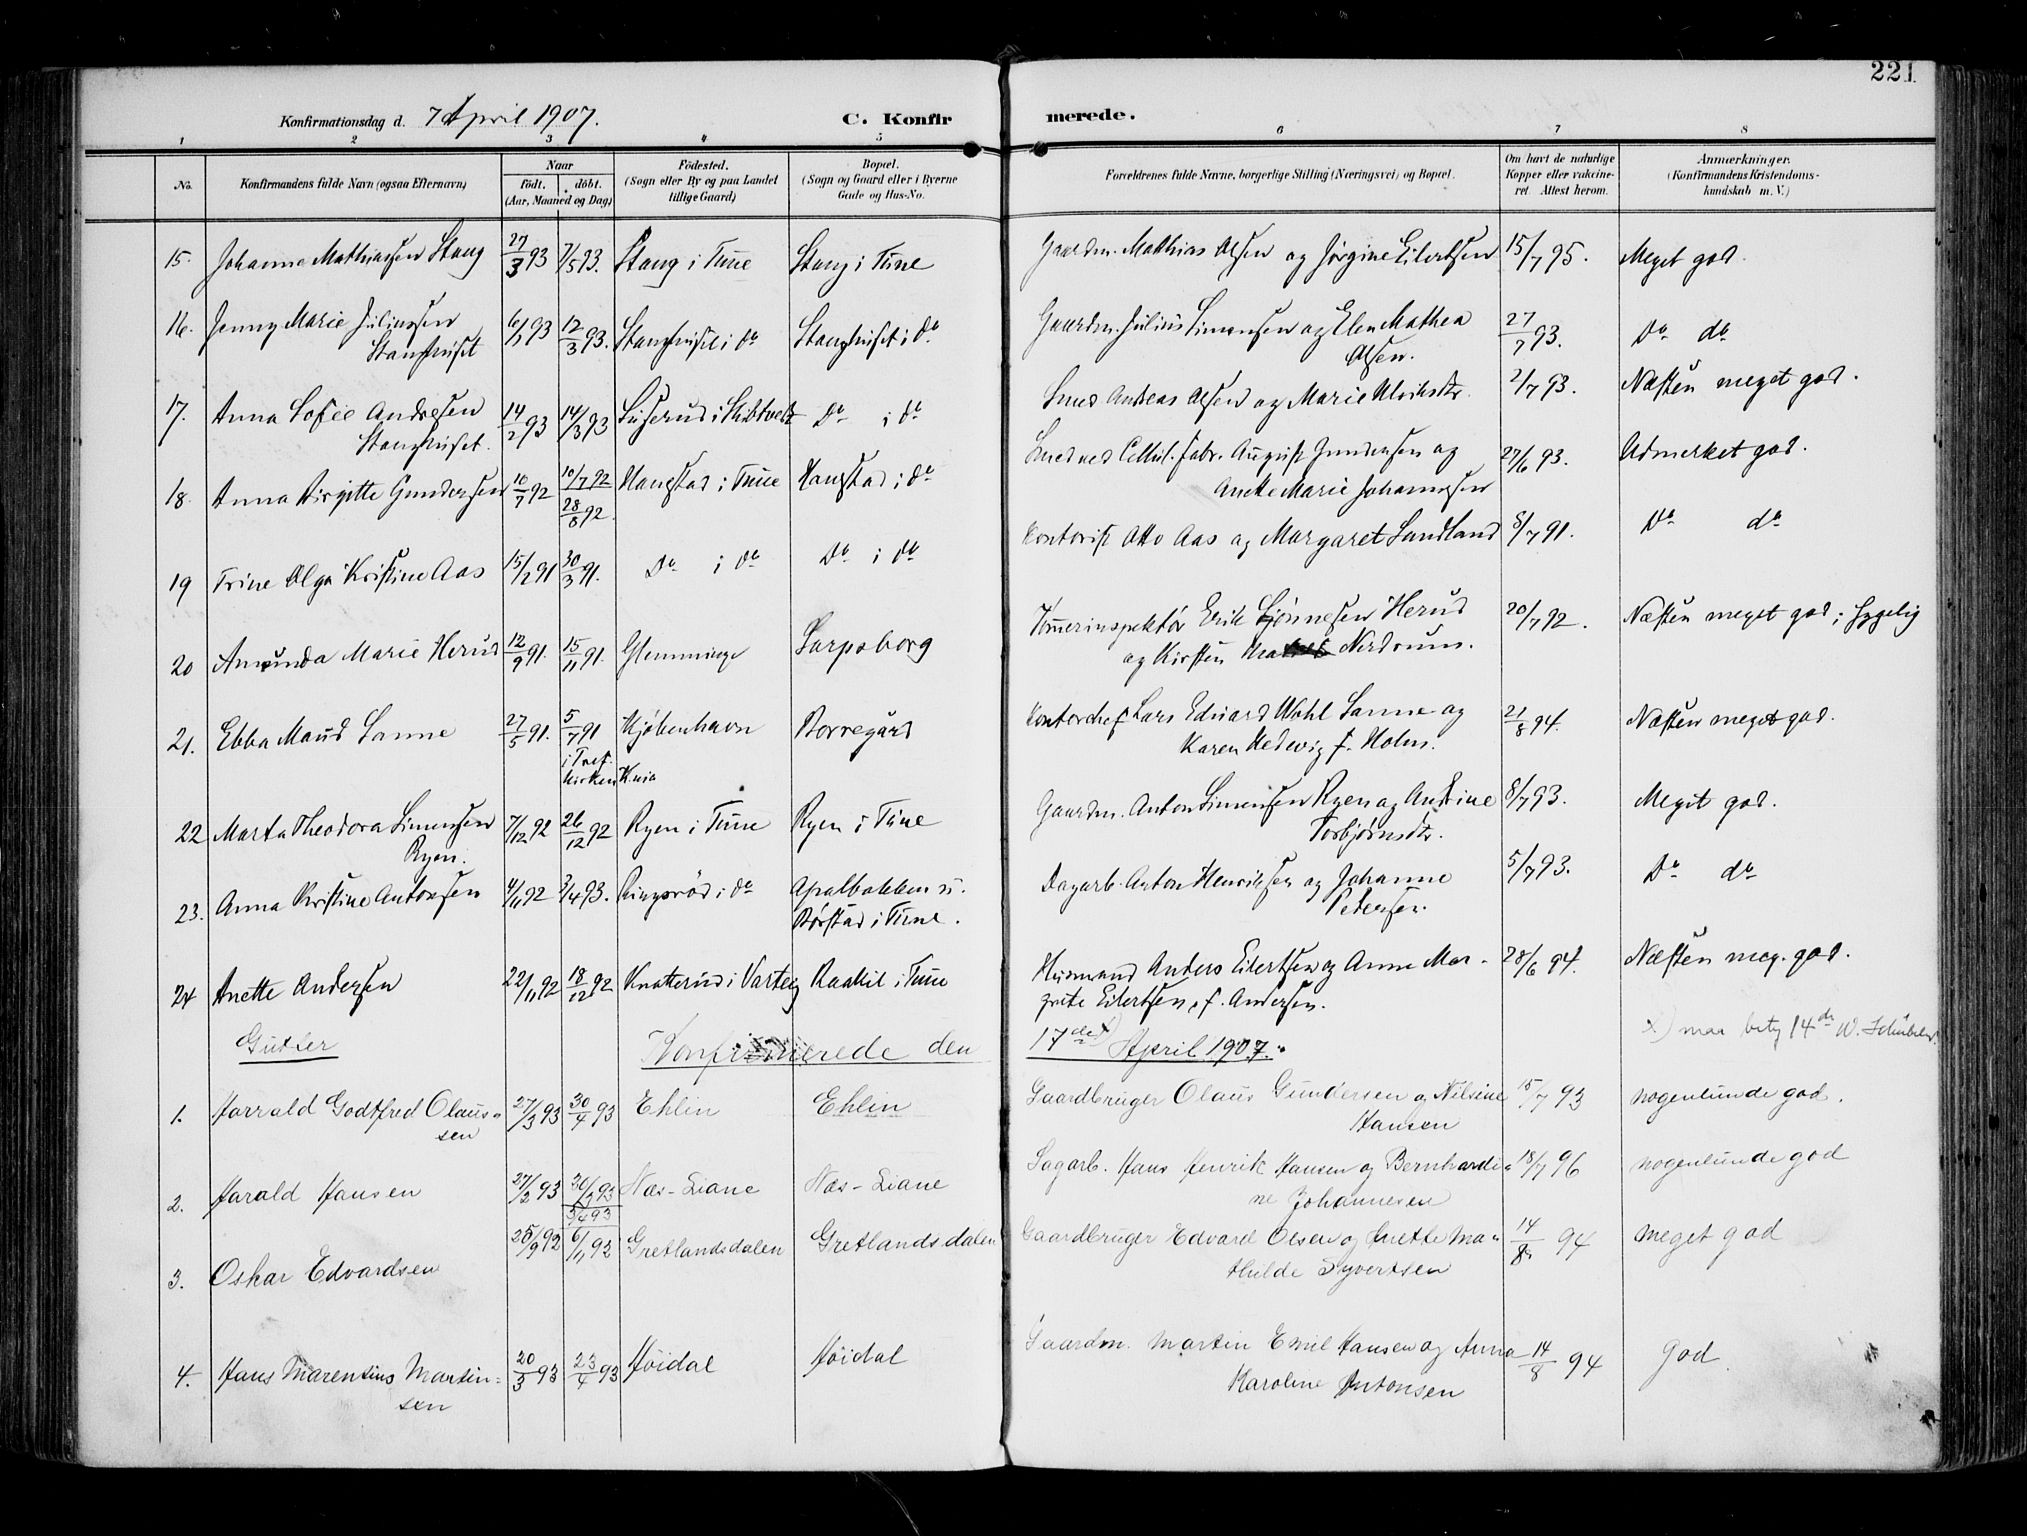 221
Konfirmationsdag d. 7 April 1907. C. Konfirmerede.
1 2 3 4 5 6 7 8
No. Konfirmandens fulde Navn (ogsaa Efternavn) Naar født. døbt. (Aar, Maaned og Dag) Fødested. (Sogn eller By og paa Landet tillige Gaard) Bopæl. (Sogn og Gaard eller i Byerne Gade og Hus-No. Forældrenes fulde Navne, borgerlige Stilling (Næringsvei) og Bopæl. Om havt de naturlige Kopper eller vakcineret. Attest herom. Anmærkninger. (Konfirmandens Kristendomskundskab m. V.)
15. Johanne Mathiassen Stang 27/3 93 7/5 93. Stang i Tune Stang i Tune Gaardm. Mathias Olsen og Jørgine Eilertsen 15/7 95. Meget god.
16. Jenny Marie Juliussen 6/1 93 12/3 93. Stanghuset i do Stanghuset i do Gaardm. Julius Simensen og Elen Mathea 27/7 93. Do do
Stanghuset Olsen.
17. Anna Sofie Andresen 14/2 93 14/3 93 i Skibtvedt Do i do Smed Andreas Olsen og Marie Ulriksdtr. 2/7 93. Næsten meget god.
Stanghuset.
18. Anna Birgitte Gundersen 10/7 92 10/7 92 Hangstad i Tune Hangstad i do Smed ved Cellul. fabr. August Gundersen og 27/6 93. Udmerket god.
28/8 92. Anette Marie Johannesen
19 Trine Olga Kristine Aas 15/2 91 30/3 91. Do i do Do i do Kontorist Otto Aas og Margaret Sandland 8/7 91. Do do
20 Amunda Marie Herud 12/9 91. 15/11 91. Glemminge Sarpsborg Tømerinspektør Erik Herud 20/7 92. Næsten meget god; sygelig
og Kirsten Nerdrum.
21. Ebba Maud Sanne 27/5 91. 5/7 91 Kjøbenhavn Borregård Kontorchef Lars Eduard Wahl Sanne og 21/8 94. Næsten meget god.
i Tref. Karen Hedevig f. Holm.
kirken Knia
22 Marta Theodora Simensen 7/12 92 26/12 92 Ryen i Tune Ryen i Tune Gaardm. Anton Simensen Ryen og Andrine 8/7 93. Meget god.
Ryen. Torbjørnsdtr.
23. Anna Kristine Antonsen 4/11 92 3/4 93. Ringsrød i do Apalbakken u. Dagarb. Anton Henriksen og Johanne 5/7 93. Do do
Børstad i Tune. Pedersen.
24 Anette Andersen 22/11 92 18/12 92 Knatterud i Varteig Raakil i Tune Husmand Anders Eilertsen og Anne Mar- 28/6 94. Næsten meg. god.
grete Eilertsen, f. Andersen.
Gutter Konfirmerede den 17de x) April 1907. x) maa bety 14de W. Schübeler
1. Harrald Godtfred Olaus- 27/3 93 30/4 93 Ehlin Ehlin Gaardbruger Olaus Gundersen og Nilsine 15/7 93 nogenlunde god.
sen Hansen
2. Harald Hansen 27/2 93 93 Næs-Liane Næs-Liane Sagarb. Hans Henrik Hansen og Bernhardi- 18/7 96 nogenlunde god
3/4 93 ne Johannesen
3. Oskar Edvardsen 25/9 92 6/11 92 Gretlandsdalen Gretlandsdalen Gaardbruger Edvard Olsen og Anette Ma- 14/8 94 meget god
thilde Syvertsen
4. Hans Marentius Martin- 20/3 93 23/4 93 Høidal Høidal Gaardm. Martin Emil Hansen og Anna 14/8 94 God.
sen Karoline Antonsen